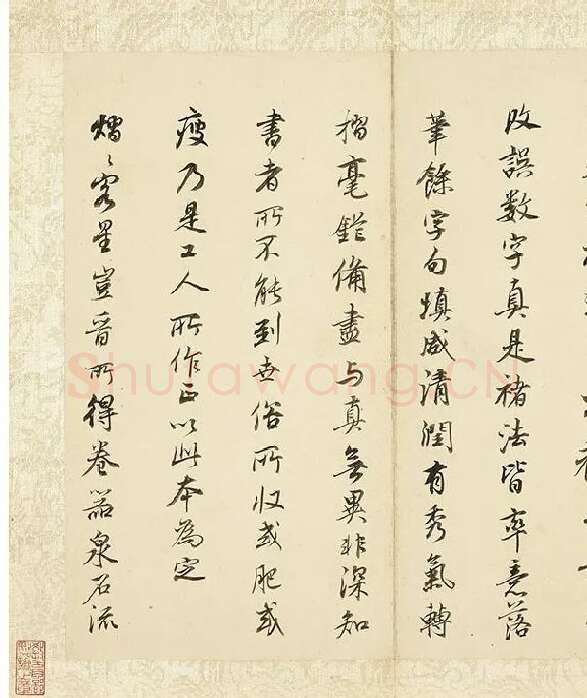 改誤数字真是褚法皆率意落
筆餘字勾填咸清潤有秀氣轉
摺毫鋩備盡与真無異非深知
書者所不能到世俗所收或肥或
瘦乃是工人所作正以此本為定
熠熠客星豈晉所得卷器泉石流
Shufawang.CN